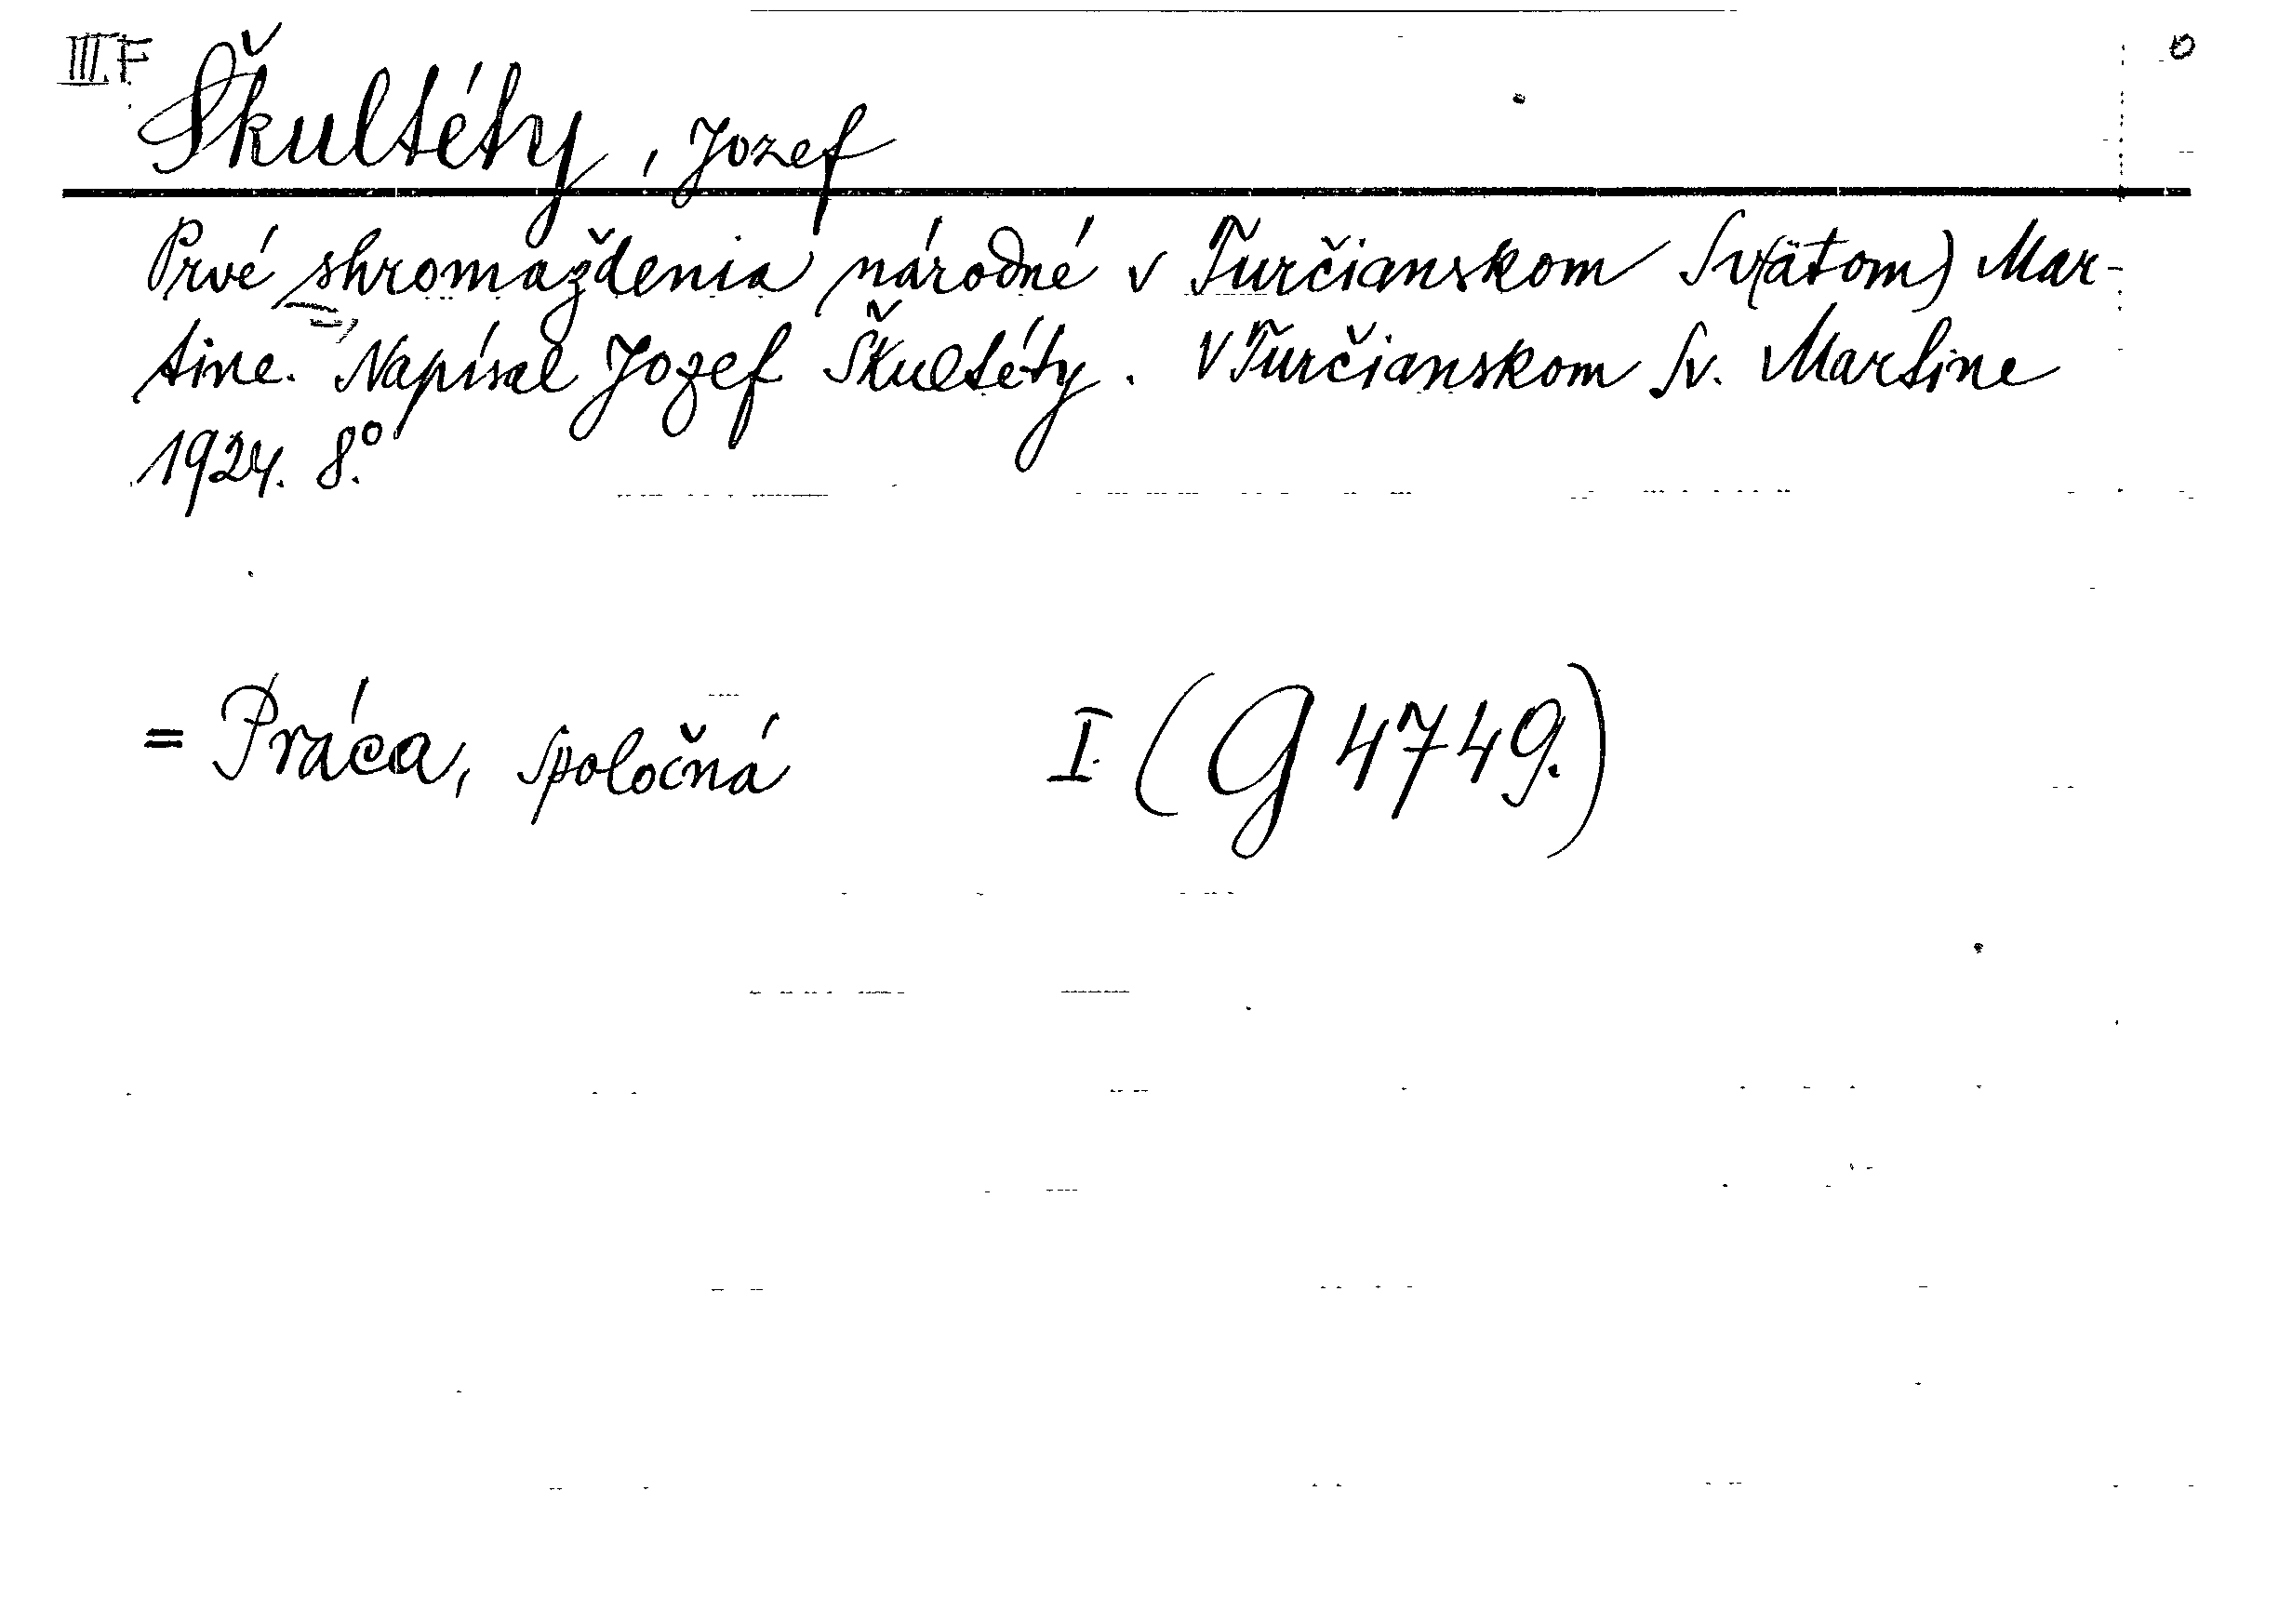 III.F. 0
Škultéty, Jozef
Prvé shromaždenia národné v Turčianskom Sv(ätom) Mar-
tine. Napísal Jozef Škultéty. V Turčianskom Sv. Martine
1924. 8.°
= Práca, spoločná I. (G 4749.)